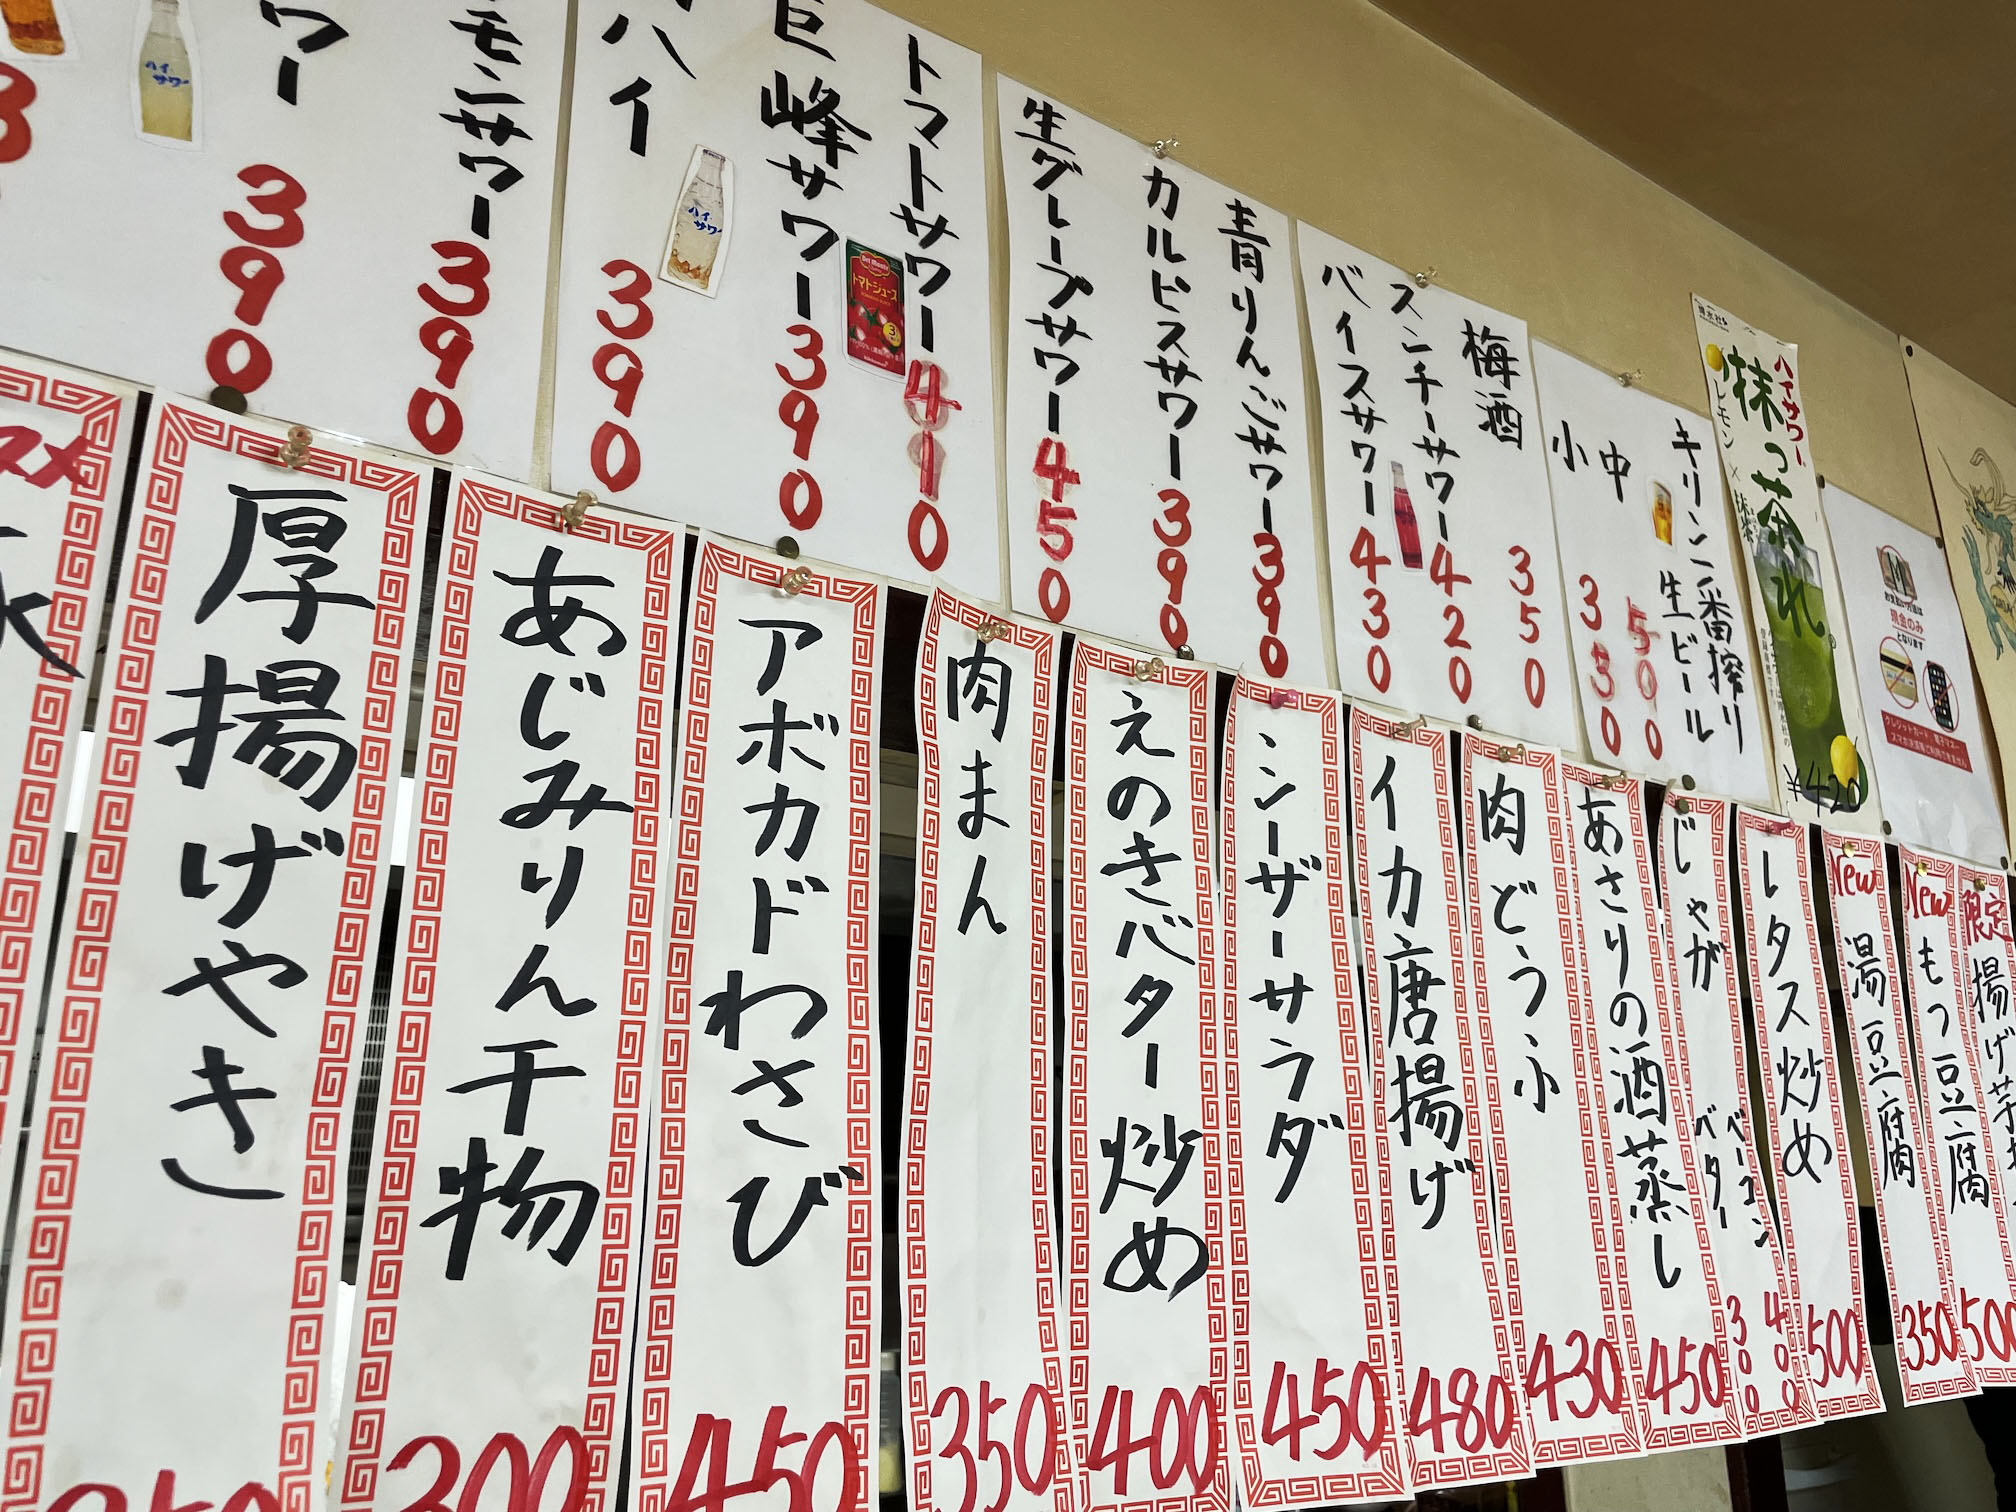 キリン一番搾り
生ビール
中 500
小 350
梅酒 350
スンチーサワー 420
バイスサワー 430
青りんごサワー 390
カルピスサワー 390
生グレープサワー 450
トマトサワー 410
巨峰サワー 390
ハイ 390
モンサワー 390
ワー 390
ハイサワー
抹っ茶れ。
レモン×抹茶
¥420
お支払い方法は
現金のみ
となります
ハイ・サワー
ハイ・サワー
Del Monte
トマトジュース
限定
揚げ
500
New
もつ豆腐
350
New
湯豆腐
レタス炒め
500
じゃが
ベーコン 400
バター 300
あさりの酒蒸し
450
肉どうふ
430
イカ唐揚げ
480
シーザーサラダ
450
えのきバター炒め
400
肉まん
350
アボカドわさび
450
あじみりん干物
300
厚揚げやき
350